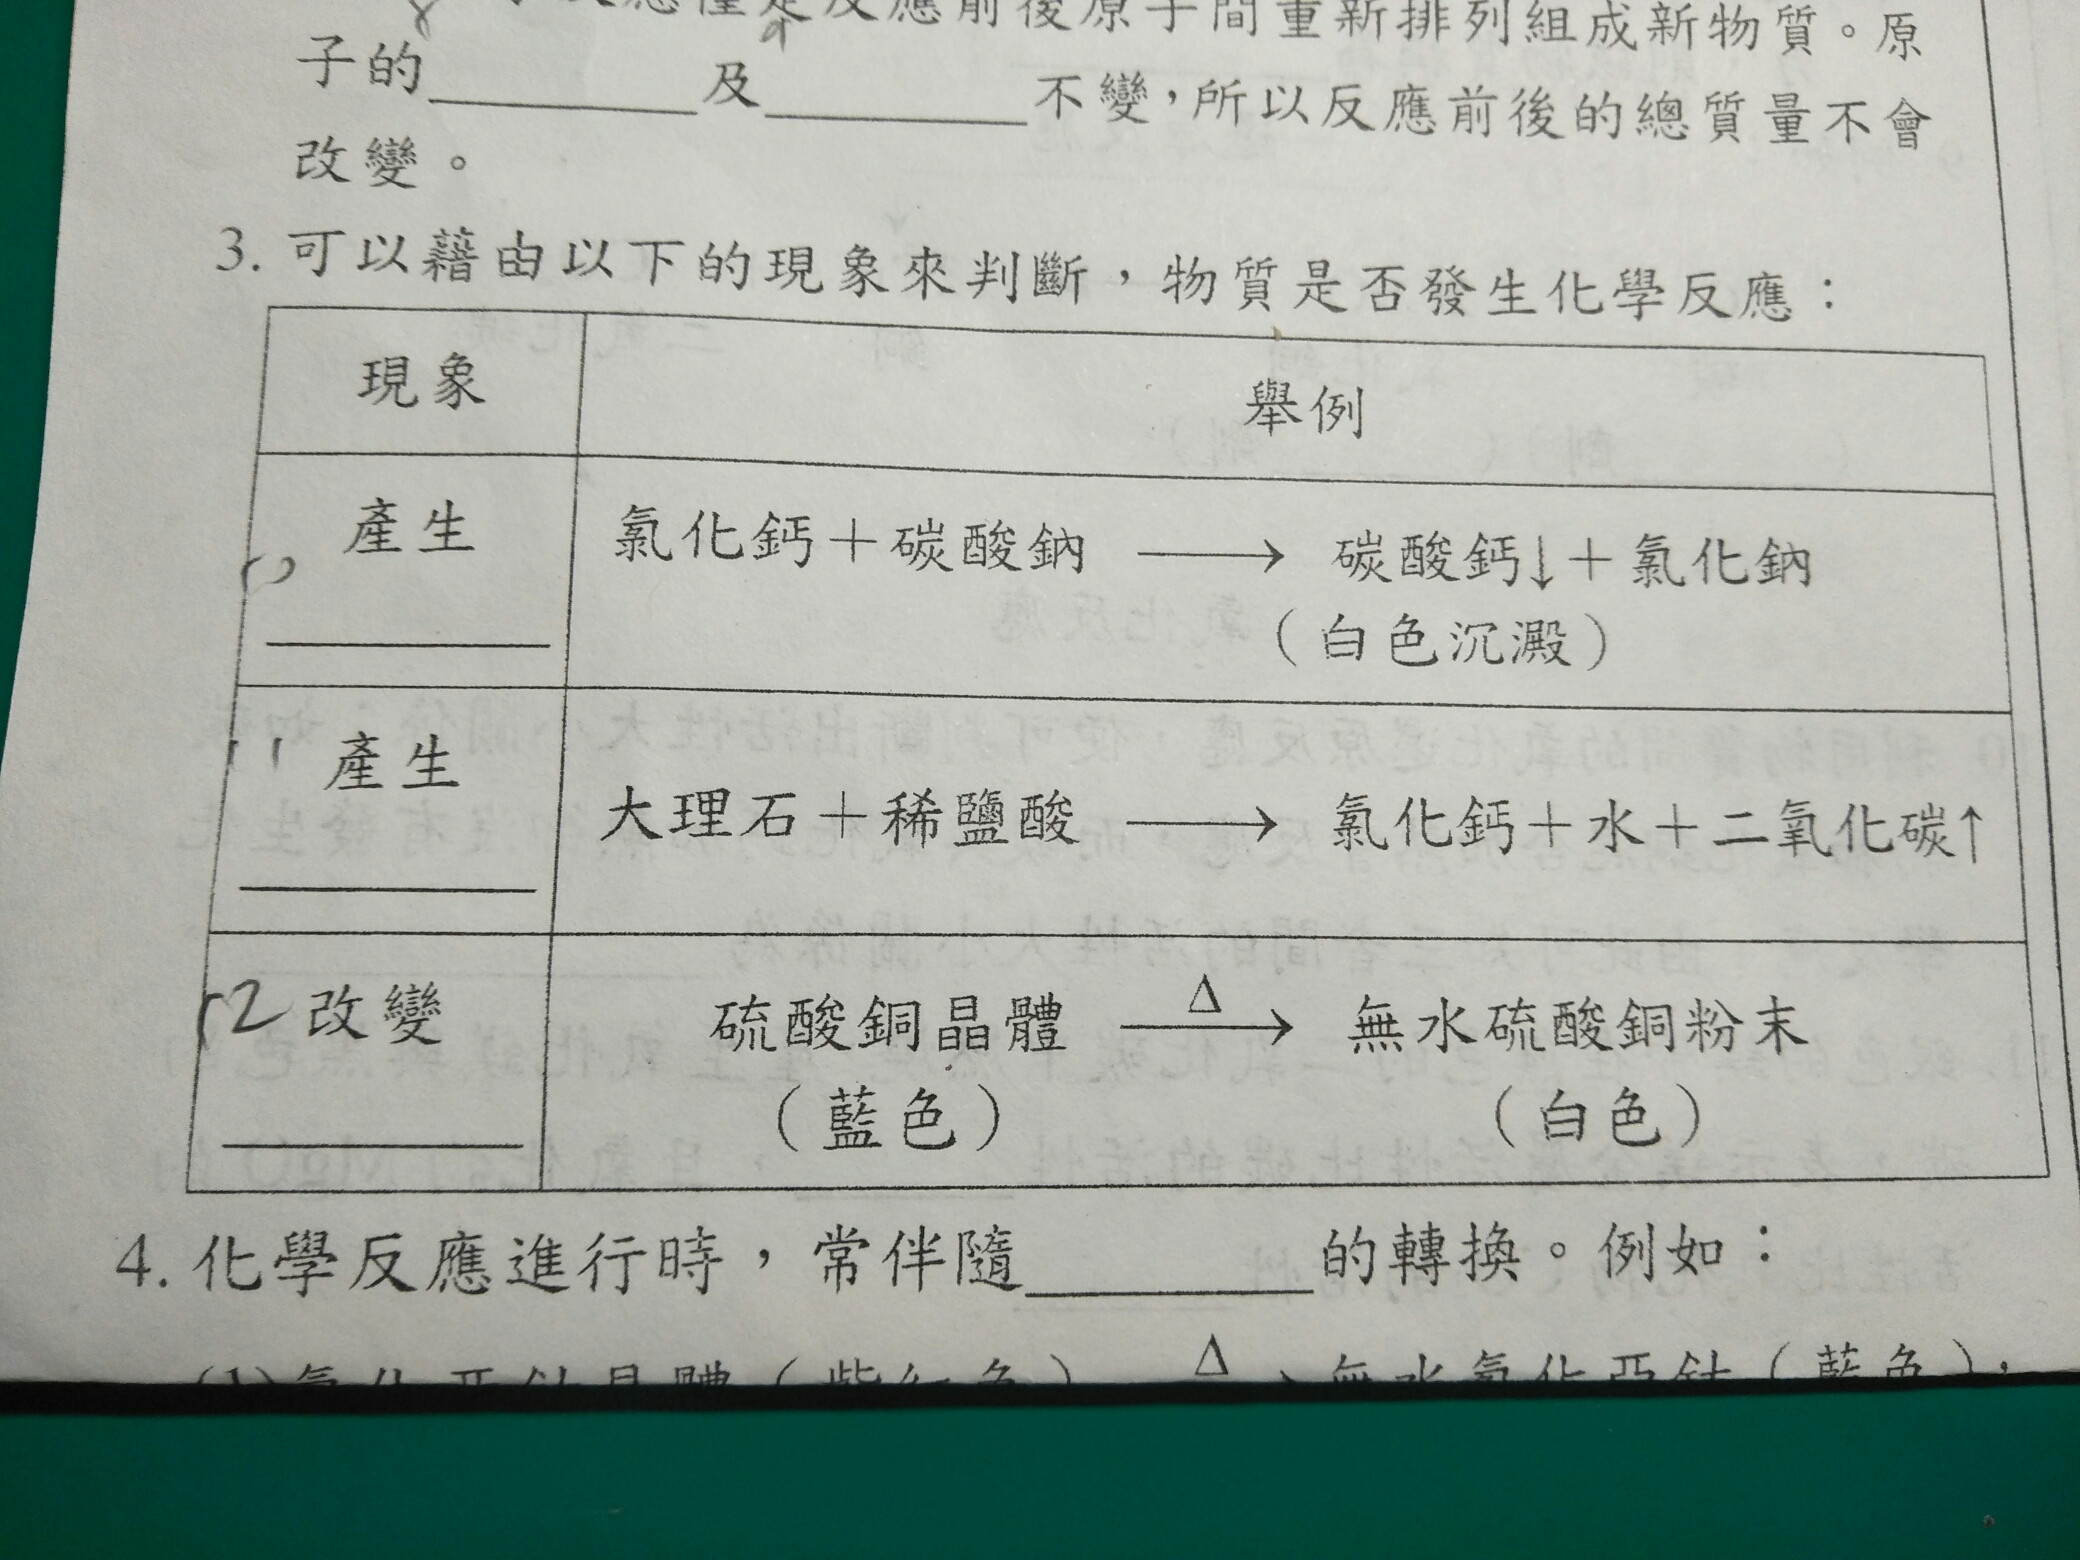 反應前後原子間重新排列組成新物質。原
子的________及________不變，所以反應前後的總質量不會
改變。
3. 可以藉由以下的現象來判斷，物質是否發生化學反應：
現象 舉例
產生 氯化鈣＋碳酸鈉 ⟶ 碳酸鈣↓＋氯化鈉
10
________ （白色沉澱）
11 產生
大理石＋稀鹽酸 ⟶ 氯化鈣＋水＋二氧化碳↑
________
12 改變 硫酸銅晶體 Δ⟶ 無水硫酸銅粉末
________ （藍色） （白色）
4. 化學反應進行時，常伴隨________的轉換。例如：
(1)氯化亞鈷晶體（紫紅色） Δ⟶ 無水氯化亞鈷（藍色），